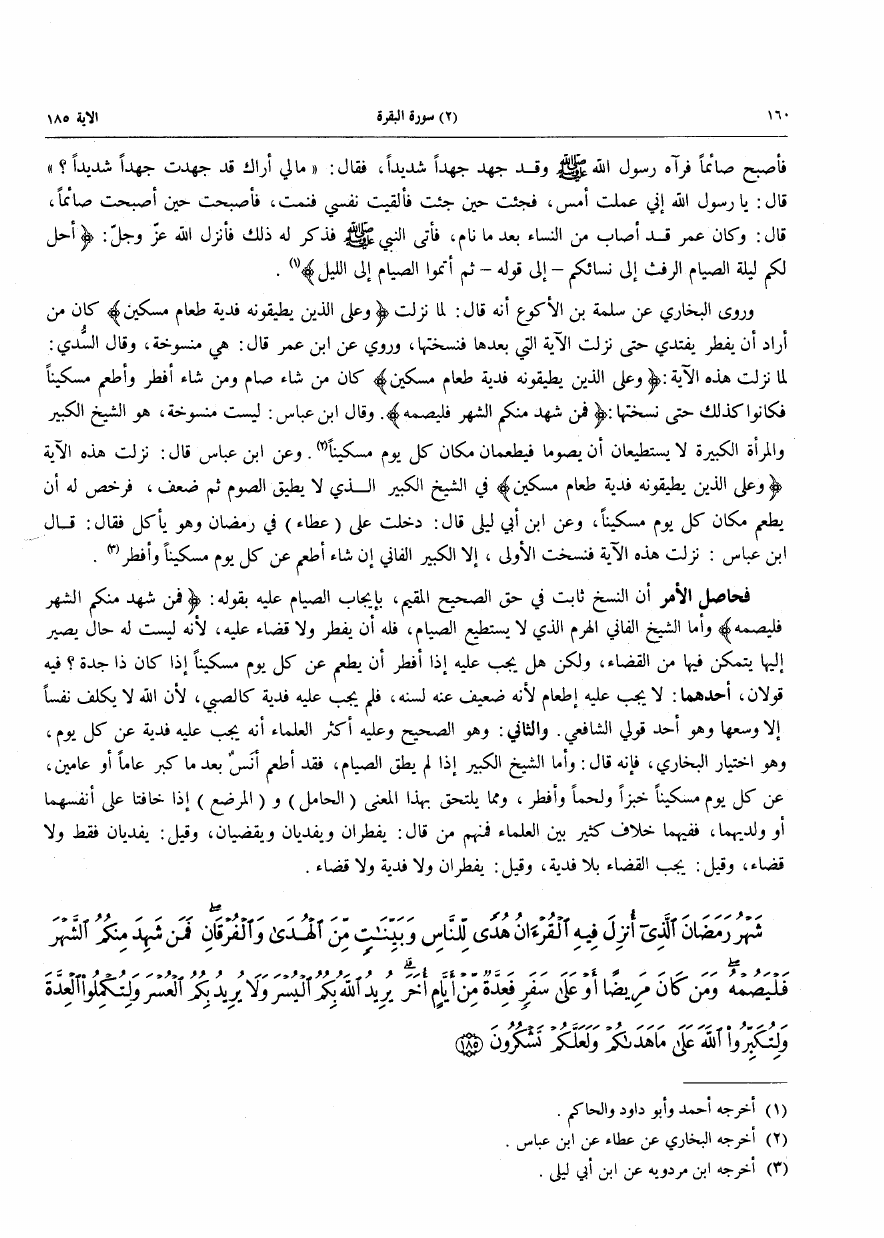 ١٦٠
(٢) سورة البقرة
الآية ١٨٥
فأصبح صائماً فرآه رسول الله ﷺ وقـد جهد جهداً شديداً، فقال: « مالي أراك قد جهدت جهداً شديداً ؟ »
قال: يا رسول الله إني عملت أمس، فجئت حين جئت فألقيت نفسي فنمت، فأصبحت حين أصبحت صائماً،
قال: وكان عمر قـد أصاب من النساء بعد ما نام، فأتى النبي ﷺ فذكر له ذلك فأنزل الله عزّ وجلّ: ﴿ أحل
لكم ليلة الصيام الرفث إلى نسائكم – إلى قوله – ثم أتموا الصيام إلى الليل ﴾(١) .
وروى البخاري عن سلمة بن الأكوع أنه قال: لما نزلت ﴿ وعلى الذين يطيقونه فدية طعام مسكين ﴾ كان من
أراد أن يفطر يفتدي حتى نزلت الآية التي بعدها فنسختها، وروي عن ابن عمر قال: هي منسوخة، وقال السُّدي:
لما نزلت هذه الآية: ﴿ وعلى الذين يطيقونه فدية طعام مسكين ﴾ كان من شاء صام ومن شاء أفطر وأطعم مسكيناً
فكانوا كذلك حتى نسختها: ﴿ فمن شهد منكم الشهر فليصمه ﴾. وقال ابن عباس: ليست منسوخة، هو الشيخ الكبير
والمرأة الكبيرة لا يستطيعان أن يصوما فيطعمان مكان كل يوم مسكيناً(٢). وعن ابن عباس قال: نزلت هذه الآية
﴿ وعلى الذين يطيقونه فدية طعام مسكين ﴾ في الشيخ الكبير الـذي لا يطيق الصوم ثم ضعف ، فرخص له أن
يطعم مكان كل يوم مسكيناً، وعن ابن أبي ليلى قال: دخلت على ( عطاء ) في رمضان وهو يأكل فقال: قـال
ابن عباس : نزلت هذه الآية فنسخت الأولى ، إلا الكبير الفاني إن شاء أطعم عن كل يوم مسكيناً وأفطر (٣) .
فحاصل الأمر أن النسخ ثابت في حق الصحيح المقيم، بإيجاب الصيام عليه بقوله: ﴿ فمن شهد منكم الشهر
فليصمه ﴾ وأما الشيخ الفاني الهرم الذي لا يستطيع الصيام، فله أن يفطر ولا قضاء عليه، لأنه ليست له حال يصير
إليها يتمكن فيها من القضاء، ولكن هل يجب عليه إذا أفطر أن يطعم عن كل يوم مسكيناً إذا كان ذا جدة ؟ فيه
قولان، أحدهما: لا يجب عليه إطعام لأنه ضعيف عنه لسنه، فلم يجب عليه فدية كالصبي، لأن الله لا يكلف نفساً
إلا وسعها وهو أحد قولي الشافعي. والثاني: وهو الصحيح وعليه أكثر العلماء أنه يجب عليه فدية عن كل يوم،
وهو اختيار البخاري، فإنه قال: وأما الشيخ الكبير إذا لم يطق الصيام، فقد أطعم أنَسٌ بعد ما كبر عاماً أو عامين،
عن كل يوم مسكيناً خبزاً ولحماً وأفطر ، ومما يلتحق بهذا المعنى ( الحامل ) و ( المرضع ) إذا خافتا على أنفسهما
أو ولديهما، ففيهما خلاف كثير بين العلماء فمنهم من قال: يفطران ويفديان ويقضيان، وقيل: يفديان فقط ولا
قضاء، وقيل: يجب القضاء بلا فدية، وقيل: يفطران ولا فدية ولا قضاء .
شَهْرُ رَمَضَانَ ٱلَّذِىٓ أُنزِلَ فِيهِ ٱلْقُرْءَانُ هُدًى لِّلنَّاسِ وَبَيِّنَٰتٍ مِّنَ ٱلْهُدَىٰ وَٱلْفُرْقَانِ ۚ فَمَن شَهِدَ مِنكُمُ ٱلشَّهْرَ
فَلْيَصُمْهُ ۖ وَمَن كَانَ مَرِيضًا أَوْ عَلَىٰ سَفَرٍ فَعِدَّةٌ مِّنْ أَيَّامٍ أُخَرَ ۗ يُرِيدُ ٱللَّهُ بِكُمُ ٱلْيُسْرَ وَلَا يُرِيدُ بِكُمُ ٱلْعُسْرَ وَلِتُكْمِلُوا۟ ٱلْعِدَّةَ
وَلِتُكَبِّرُوا۟ ٱللَّهَ عَلَىٰ مَا هَدَىٰكُمْ وَلَعَلَّكُمْ تَشْكُرُونَ ١٨٥
(١) أخرجه أحمد وأبو داود والحاكم .
(٢) أخرجه البخاري عن عطاء عن ابن عباس .
(٣) أخرجه ابن مردويه عن ابن أبي ليلى .